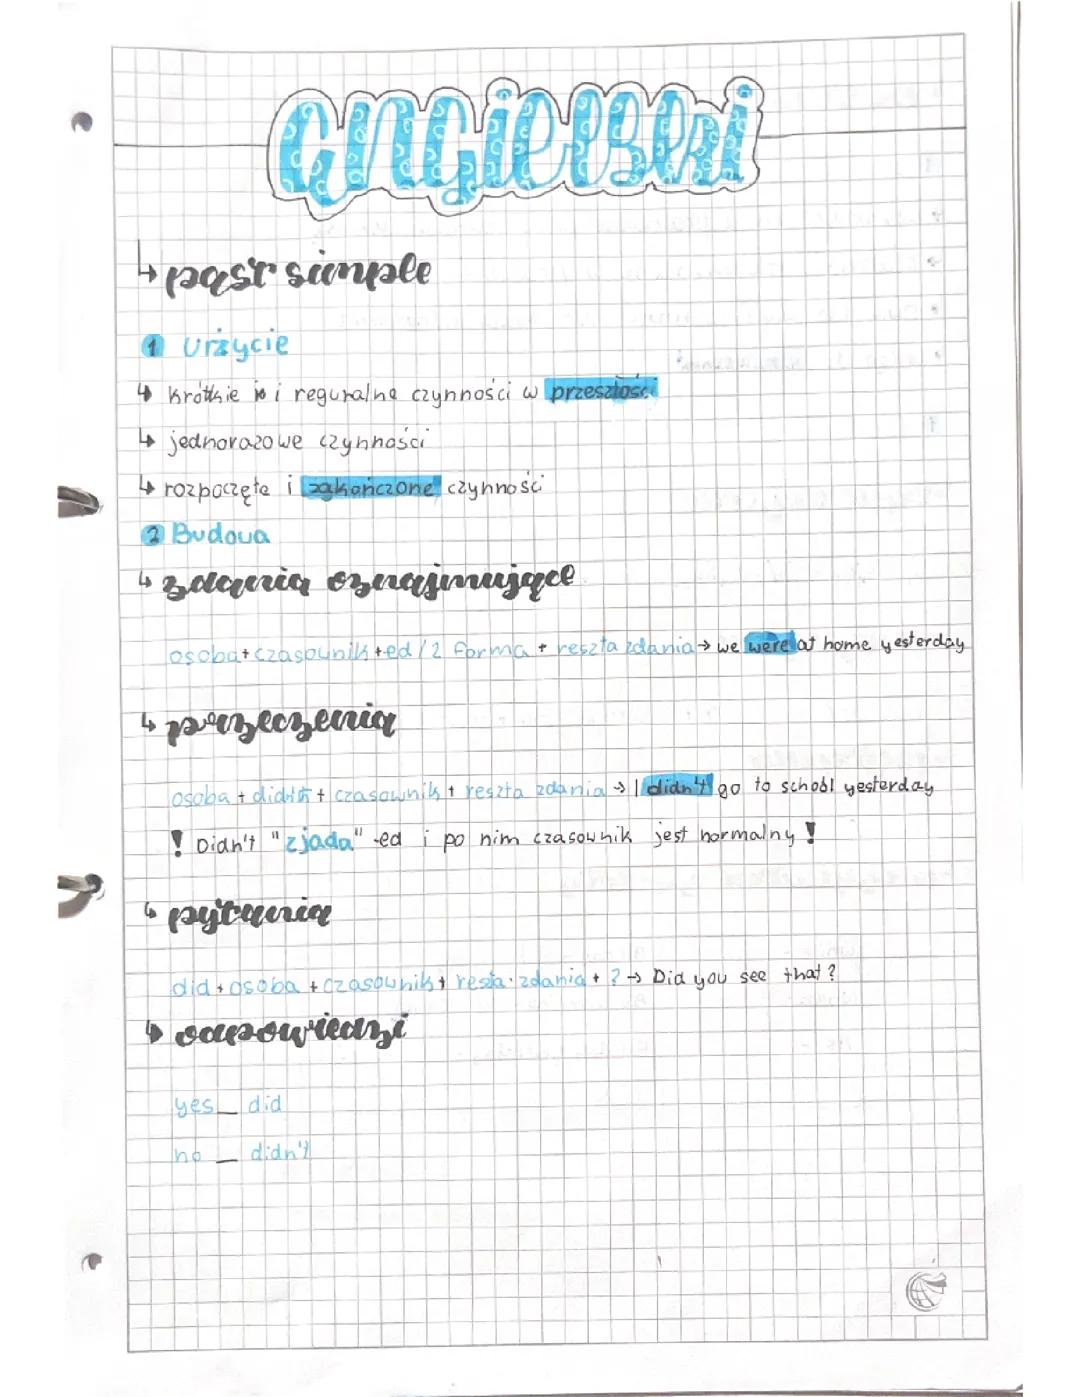 angielski
↳ past simple
1 Urzycie
↳ krótkie i reguralne czynności w przeszłości
↳ jednorazowe czynności
↳ rozpoczęte i zakończone czynności
2 Budowa
↳ zdania oznajmujące
osoba + czasownik + ed / 2 forma + reszta zdania → we were at home yesterday
↳ przeczenia
osoba + didn't + czasownik + reszta zdania → I didn't go to school yesterday
! Didn't "zjada" -ed i po nim czasownik jest normalny !
↳ pytania
did + osoba + czasownik + reszta zdania + ? → Did you see that?
↳ odpowiedzi
yes _ did
no _ didn't